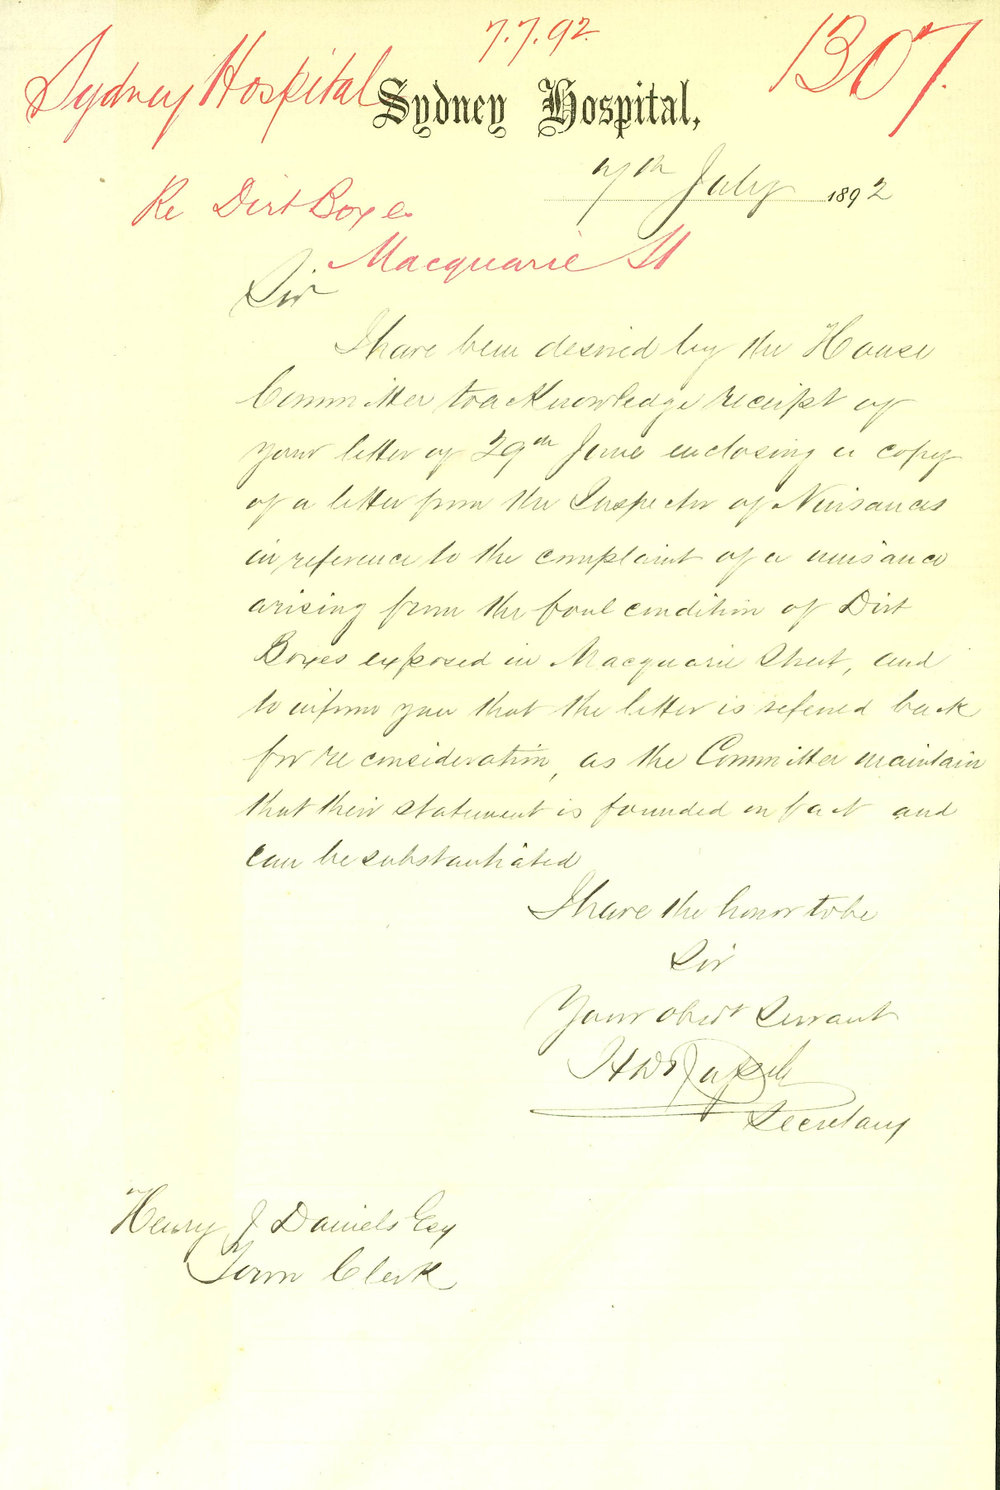 7.7.92
1307.
Sydney Hospital
Sydney Hospital,
7th July 1892
Re Dirt Boxes
Macquarie St
Sir
I have been desired by the House
Committee to acknowledge receipt of
your letter of 29th June enclosing a copy
of a letter from the Inspector of Nuisances
in reference to the complaint of a nuisance
arising from the foul condition of Dirt
Boxes exposed in Macquarie Street, and
to inform you that the letter is referred back
for reconsideration, as the Committee maintain
that their statement is founded on fact and
can be substantiated
I have the honor to be
Sir
Your obedt Servant
Secretary
Henry J Daniels Esq
Town Clerk